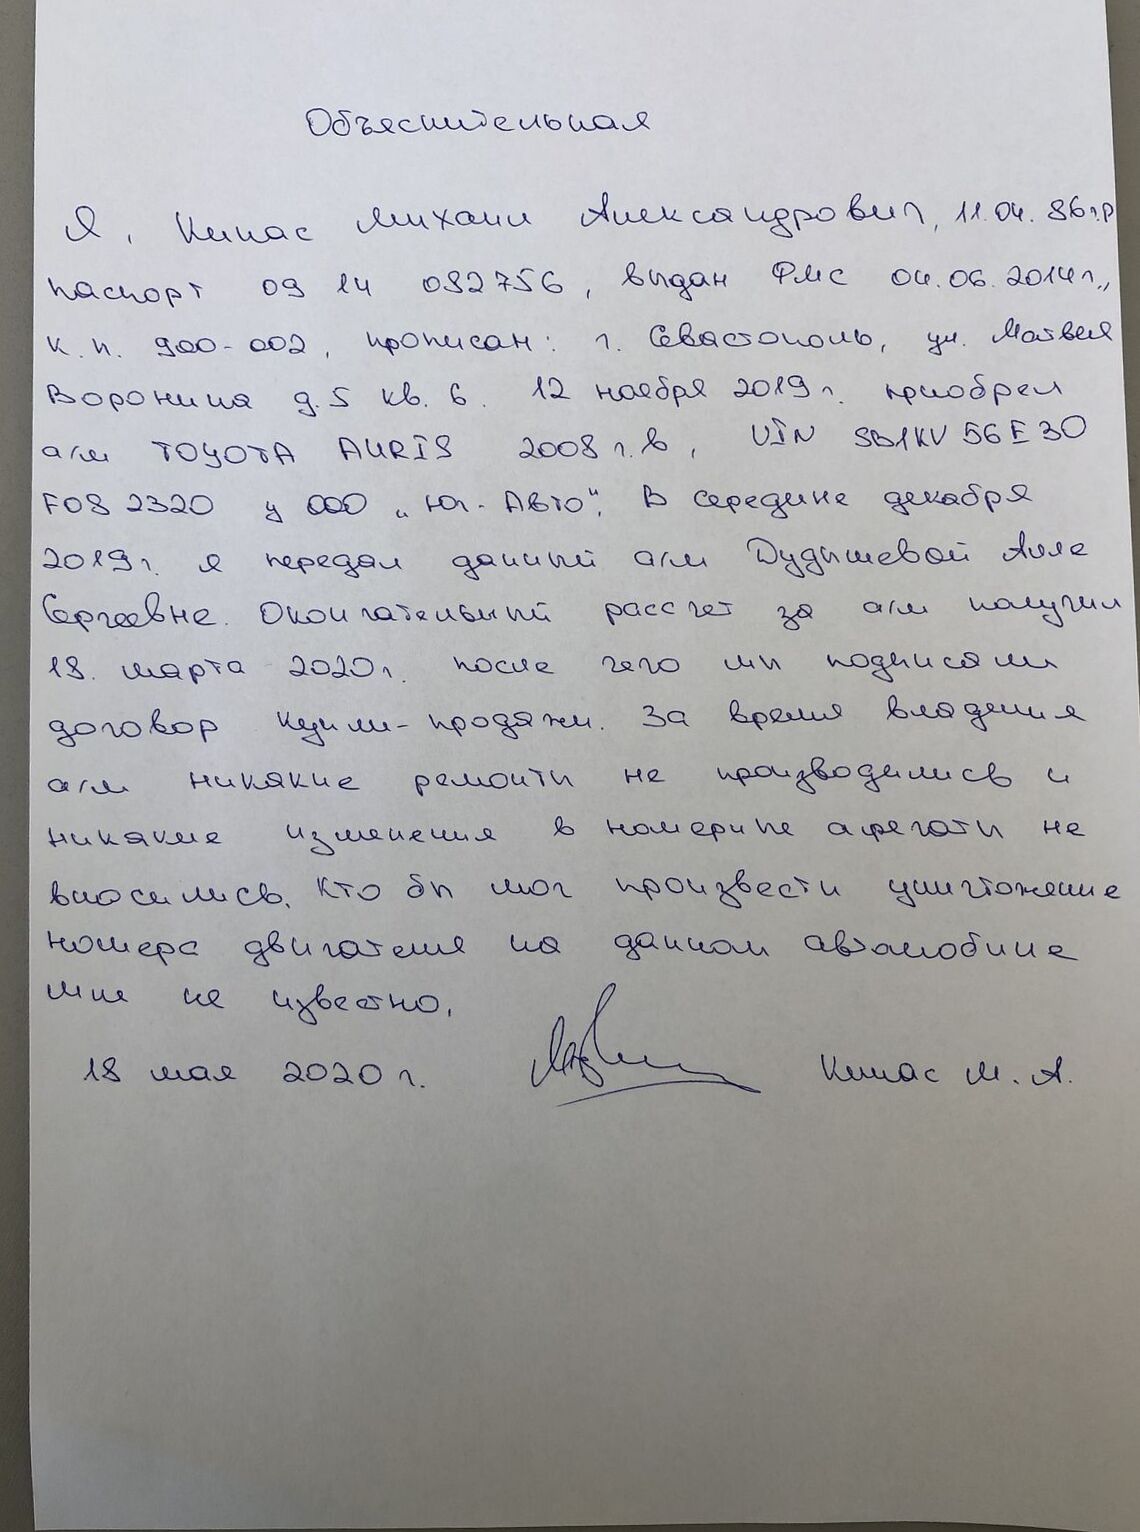 Объяснительная
Я, Кипас Михаил Александрович, 11.04.86г.р
паспорт 09 14 082756, выдан ФМС 04.06.2014г.,
к.п. 900-002, прописан: г. Севастополь, ул. Матвея
Воронина д.5 кв. 6. 12 ноября 2019г. приобрел
а/м TOYOTA AURIS 2008 г.в, VIN SB1KV56E30
F082320 у ООО "Юг-Авто". В середине декабря
2019г. я передал данный а/м Дудышевой Алле
Сергеевне. Окончательный рассчет за а/м получил
18. марта 2020г. после чего мы подписали
договор купли-продажи. За время владения
а/м никакие ремонты не производились и
никакие изменения в номерные агрегаты не
вносились. Кто бы мог произвести уничтожение
номера двигателя на данном автомобиле
мне не известно.
18 мая 2020г. Кипас М.А.